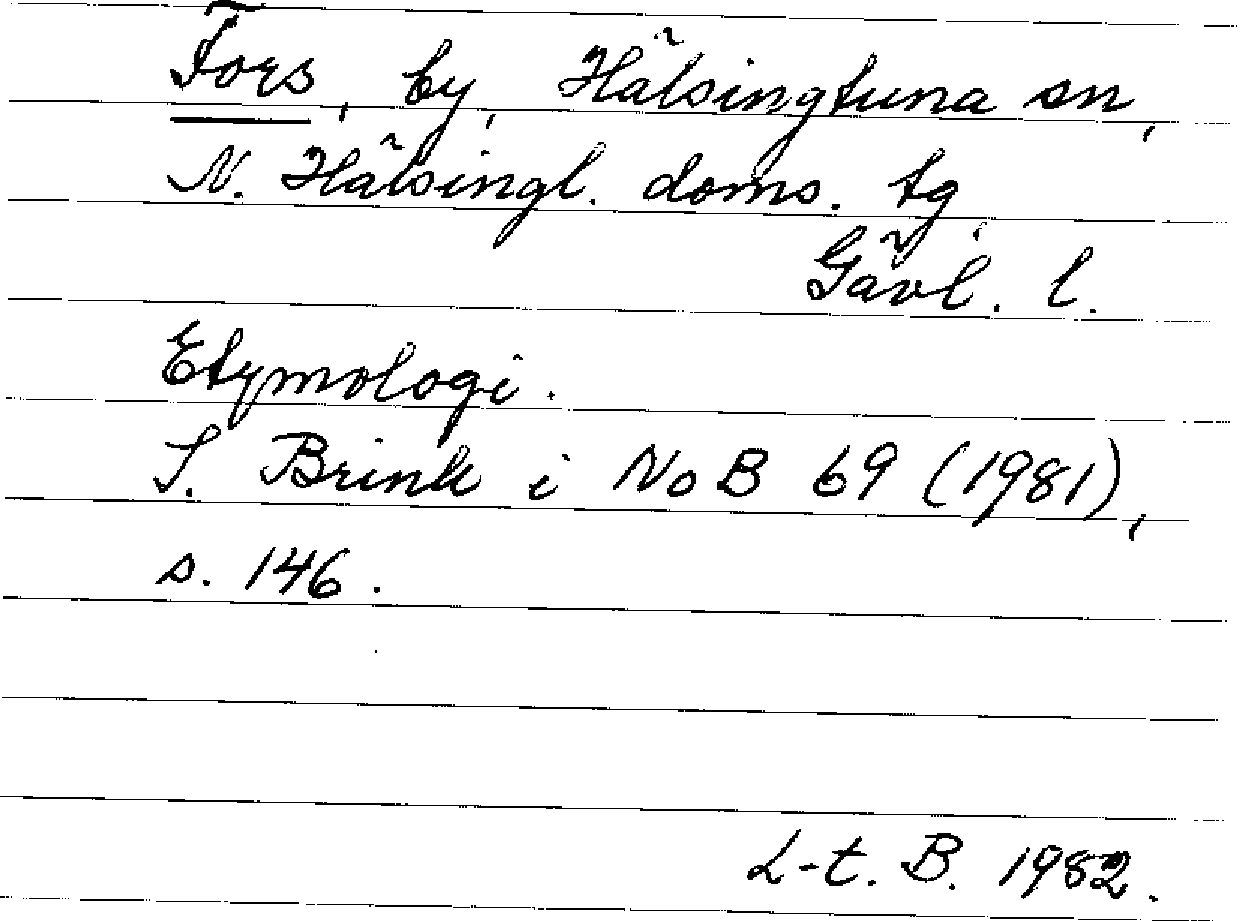 Fors, by, Hälsingtuna sn,
N. Hälsingl. doms. tg,
Gävl. l.
Etymologi.
S. Brink i NoB 69 (1981),
s. 146.
L-t. B. 1982.